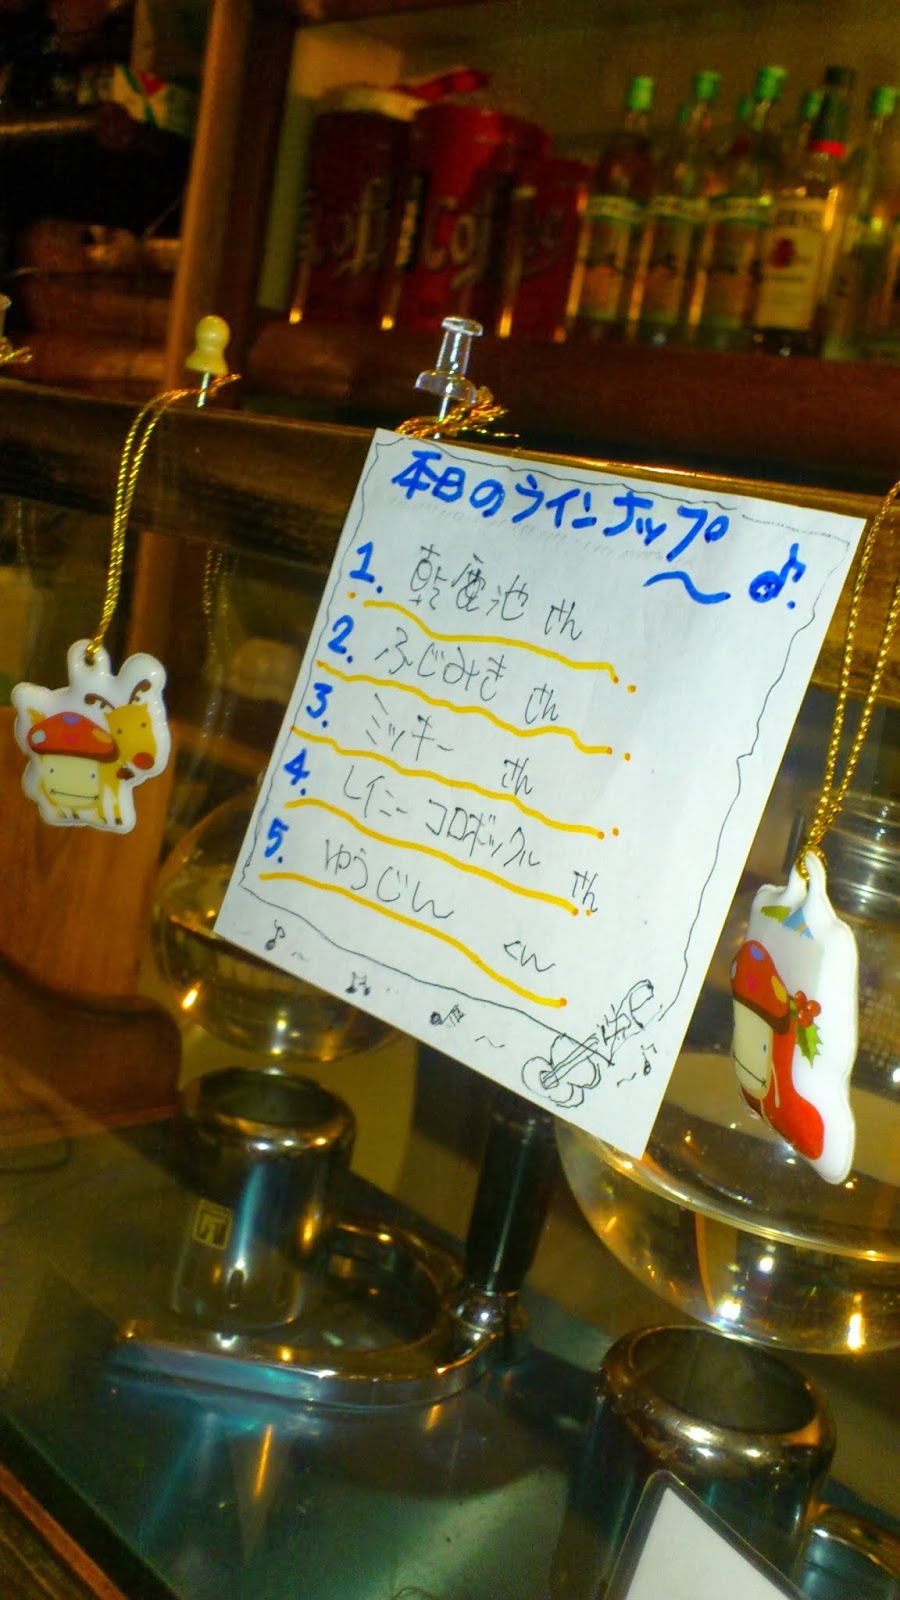 Coffe
Coffe
本日のラインナップ
～♪
1. 乾電池 さん
2. ふじみき さん
3. ミッキー さん
4. レイニーコロボックル さん
5. ゆうじん くん